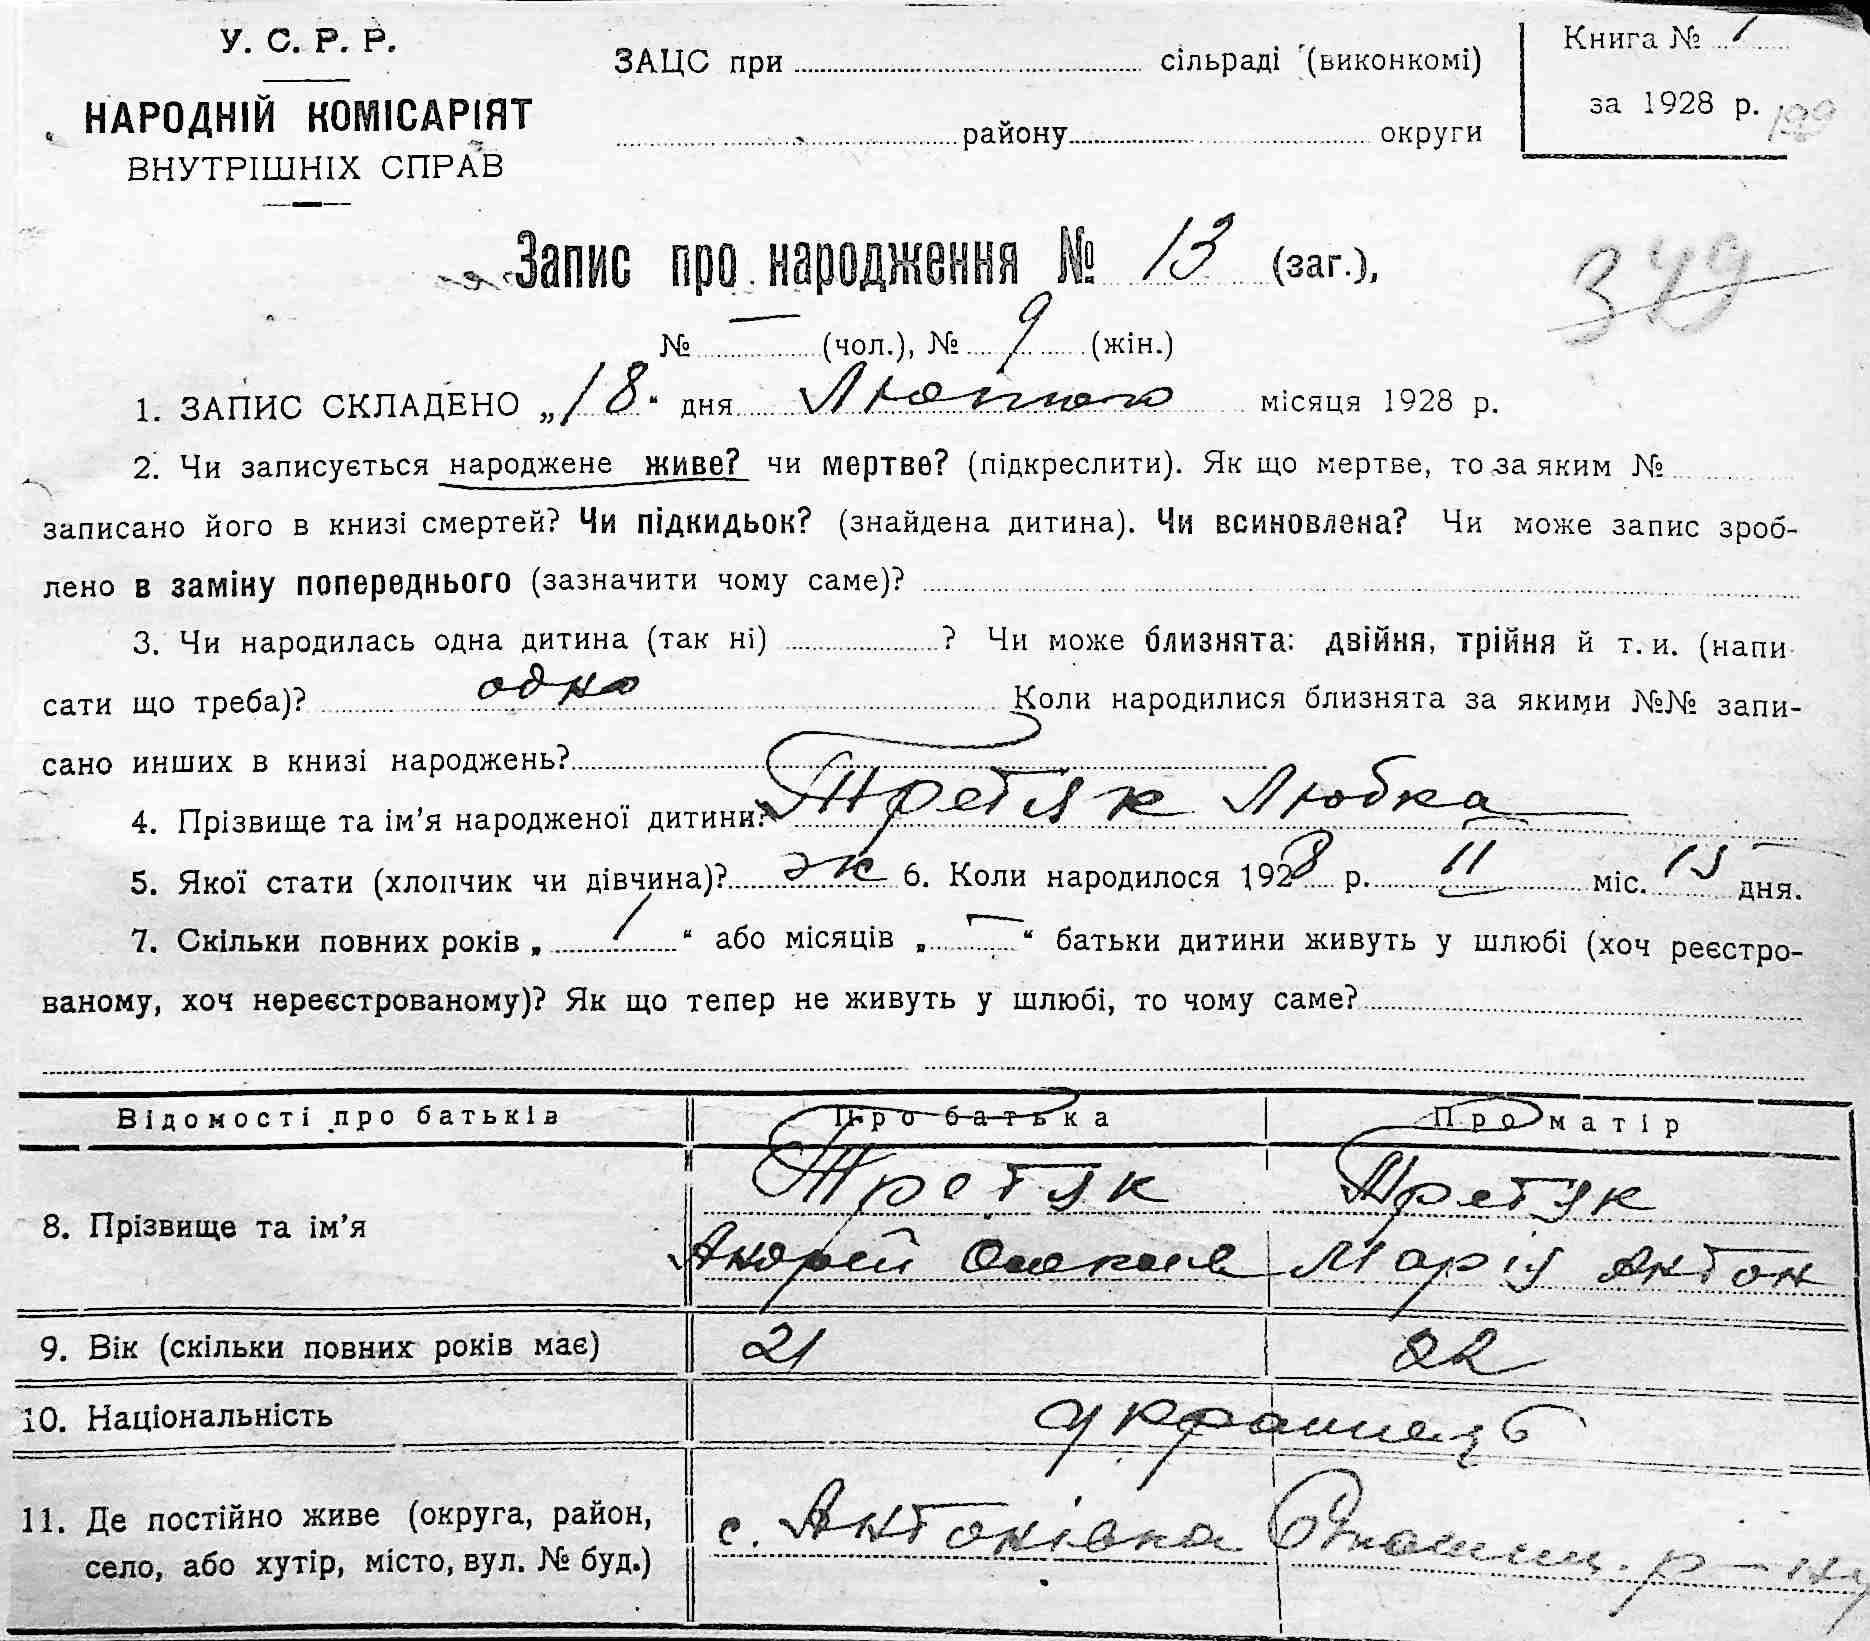 У. С. Р. Р.
НАРОДНІЙ КОМІСАРІЯТ
ВНУТРІШНІХ СПРАВ
ЗАЦС при сільраді (виконкомі)
району округи
Книга № 1
за 1928 р.
199
Запис про народження № 13 (заг.),
349
№ — (чол.), № 9 (жін.)
1. ЗАПИС СКЛАДЕНО „18“ дня Лютого місяця 1928 р.
2. Чи записується народжене живе? чи мертве? (підкреслити). Як що мертве, то за яким №
записано його в книзі смертей? Чи підкидьок? (знайдена дитина). Чи всиновлена? Чи може запис зроб-
лено в заміну попереднього (зазначити чому саме)?
3. Чи народилась одна дитина (так ні) ? Чи може близнята: двійня, трійня й т. и. (напи
сати що треба)? одно Коли народилися близнята за якими №№ запи-
сано инших в книзі народжень?
4. Прізвище та ім’я народженої дитини? Третяк Любка
5. Якої стати (хлопчик чи дівчина)? ж 6. Коли народилося 1928 р. II міс. 15 дня.
7. Скільки повних років „ 1 “ або місяців „ — “ батьки дитини живуть у шлюбі (хоч реєстро-
ваному, хоч нереєстрованому)? Як що тепер не живуть у шлюбі, то чому саме?
Відомості про батьків Про батька Про матір
8. Прізвище та ім’я Третяк Третяк
Андрей Марія Антон
9. Вік (скільки повних років має) 21 22
10. Національність українець
11. Де постійно живе (округа, район, с. Антонівка р-ну
село, або хутір, місто, вул. № буд.)